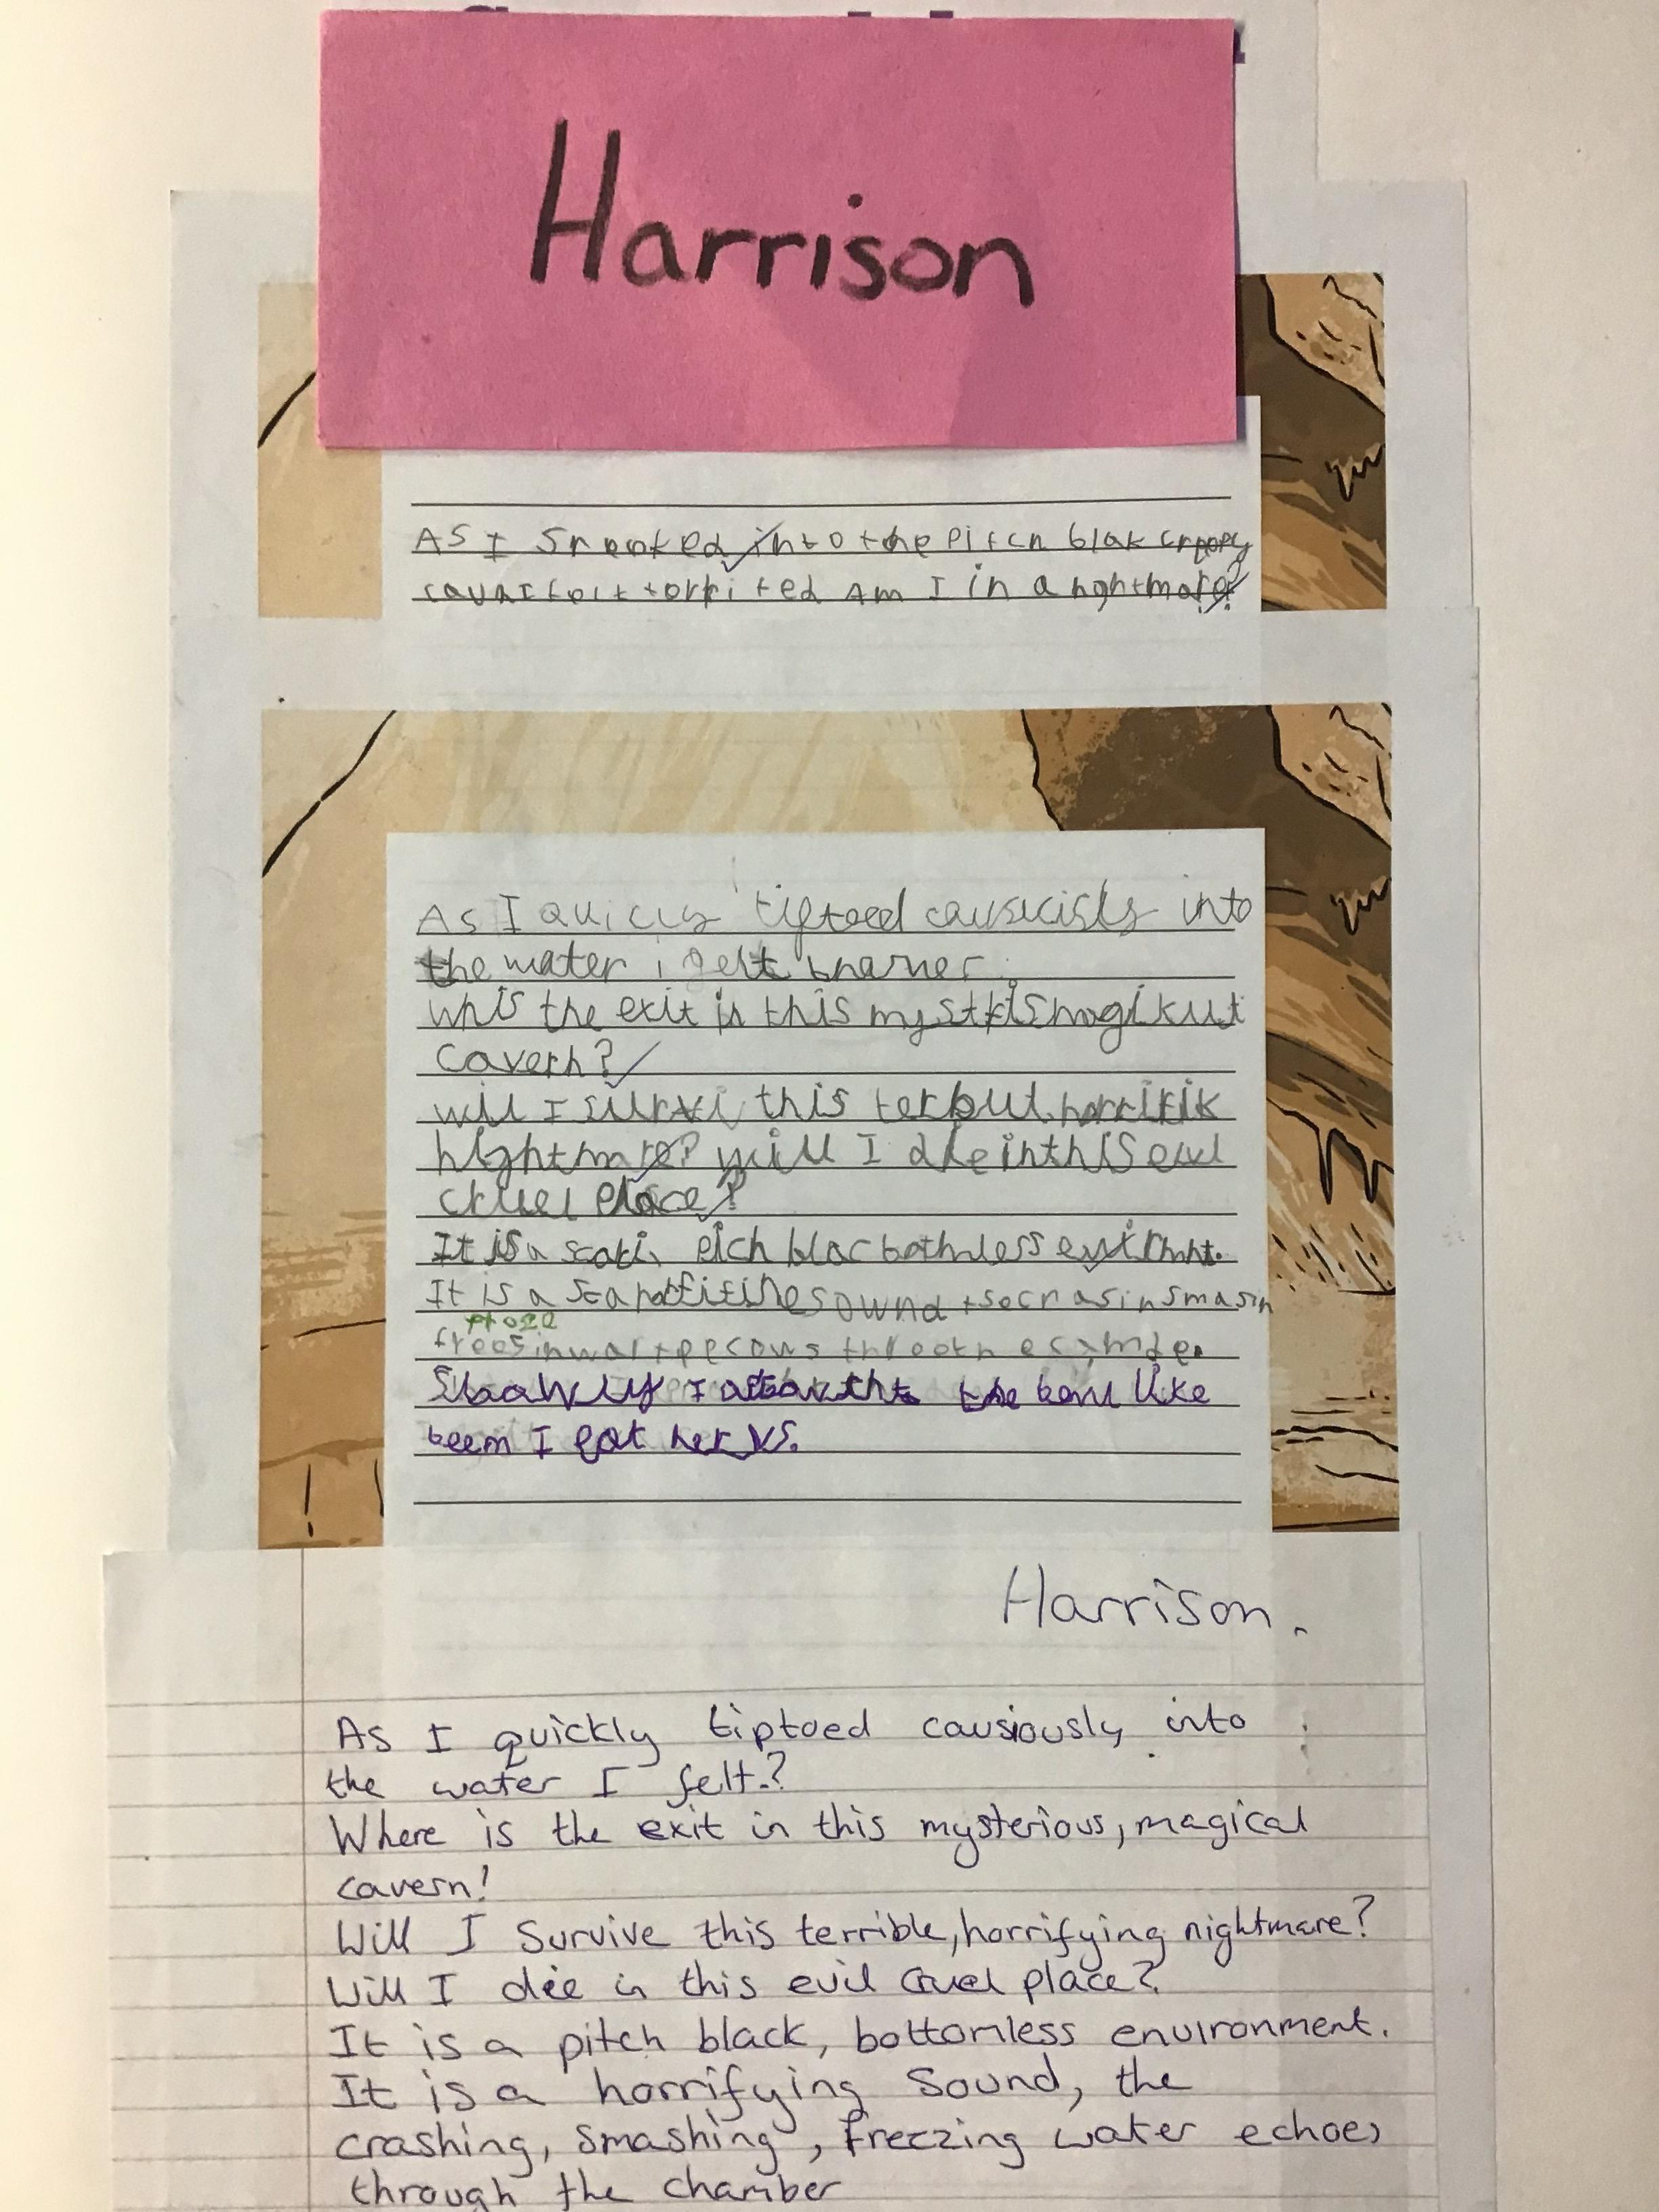 Harrison
As I snenked into the pitch blak creepy
felt terrifed Am I in a nghtmare?
As I quicly tiptoed causicisly into
the water i felt
whis the exit in this mystkismagikut
cavern?
will I survi this terbul horrifik
nightmare? will I die in this evul
cruel place?
It is a scari, pich blac bothmless
It is a sownd smasin
froze
freesin
Slowly I the like
beem I got nervs.
Harrison.
As I quickly tiptoed causiously into
the water I felt.?
Where is the exit in this mysterious, magical
cavern!
Will I survive this terrible, horrifying nightmare?
Will I die in this evil cruel place?
It is a pitch black, bottomless environment.
It is a horrifying sound, the
crashing, smashing, freezing water echoes
through the chamber